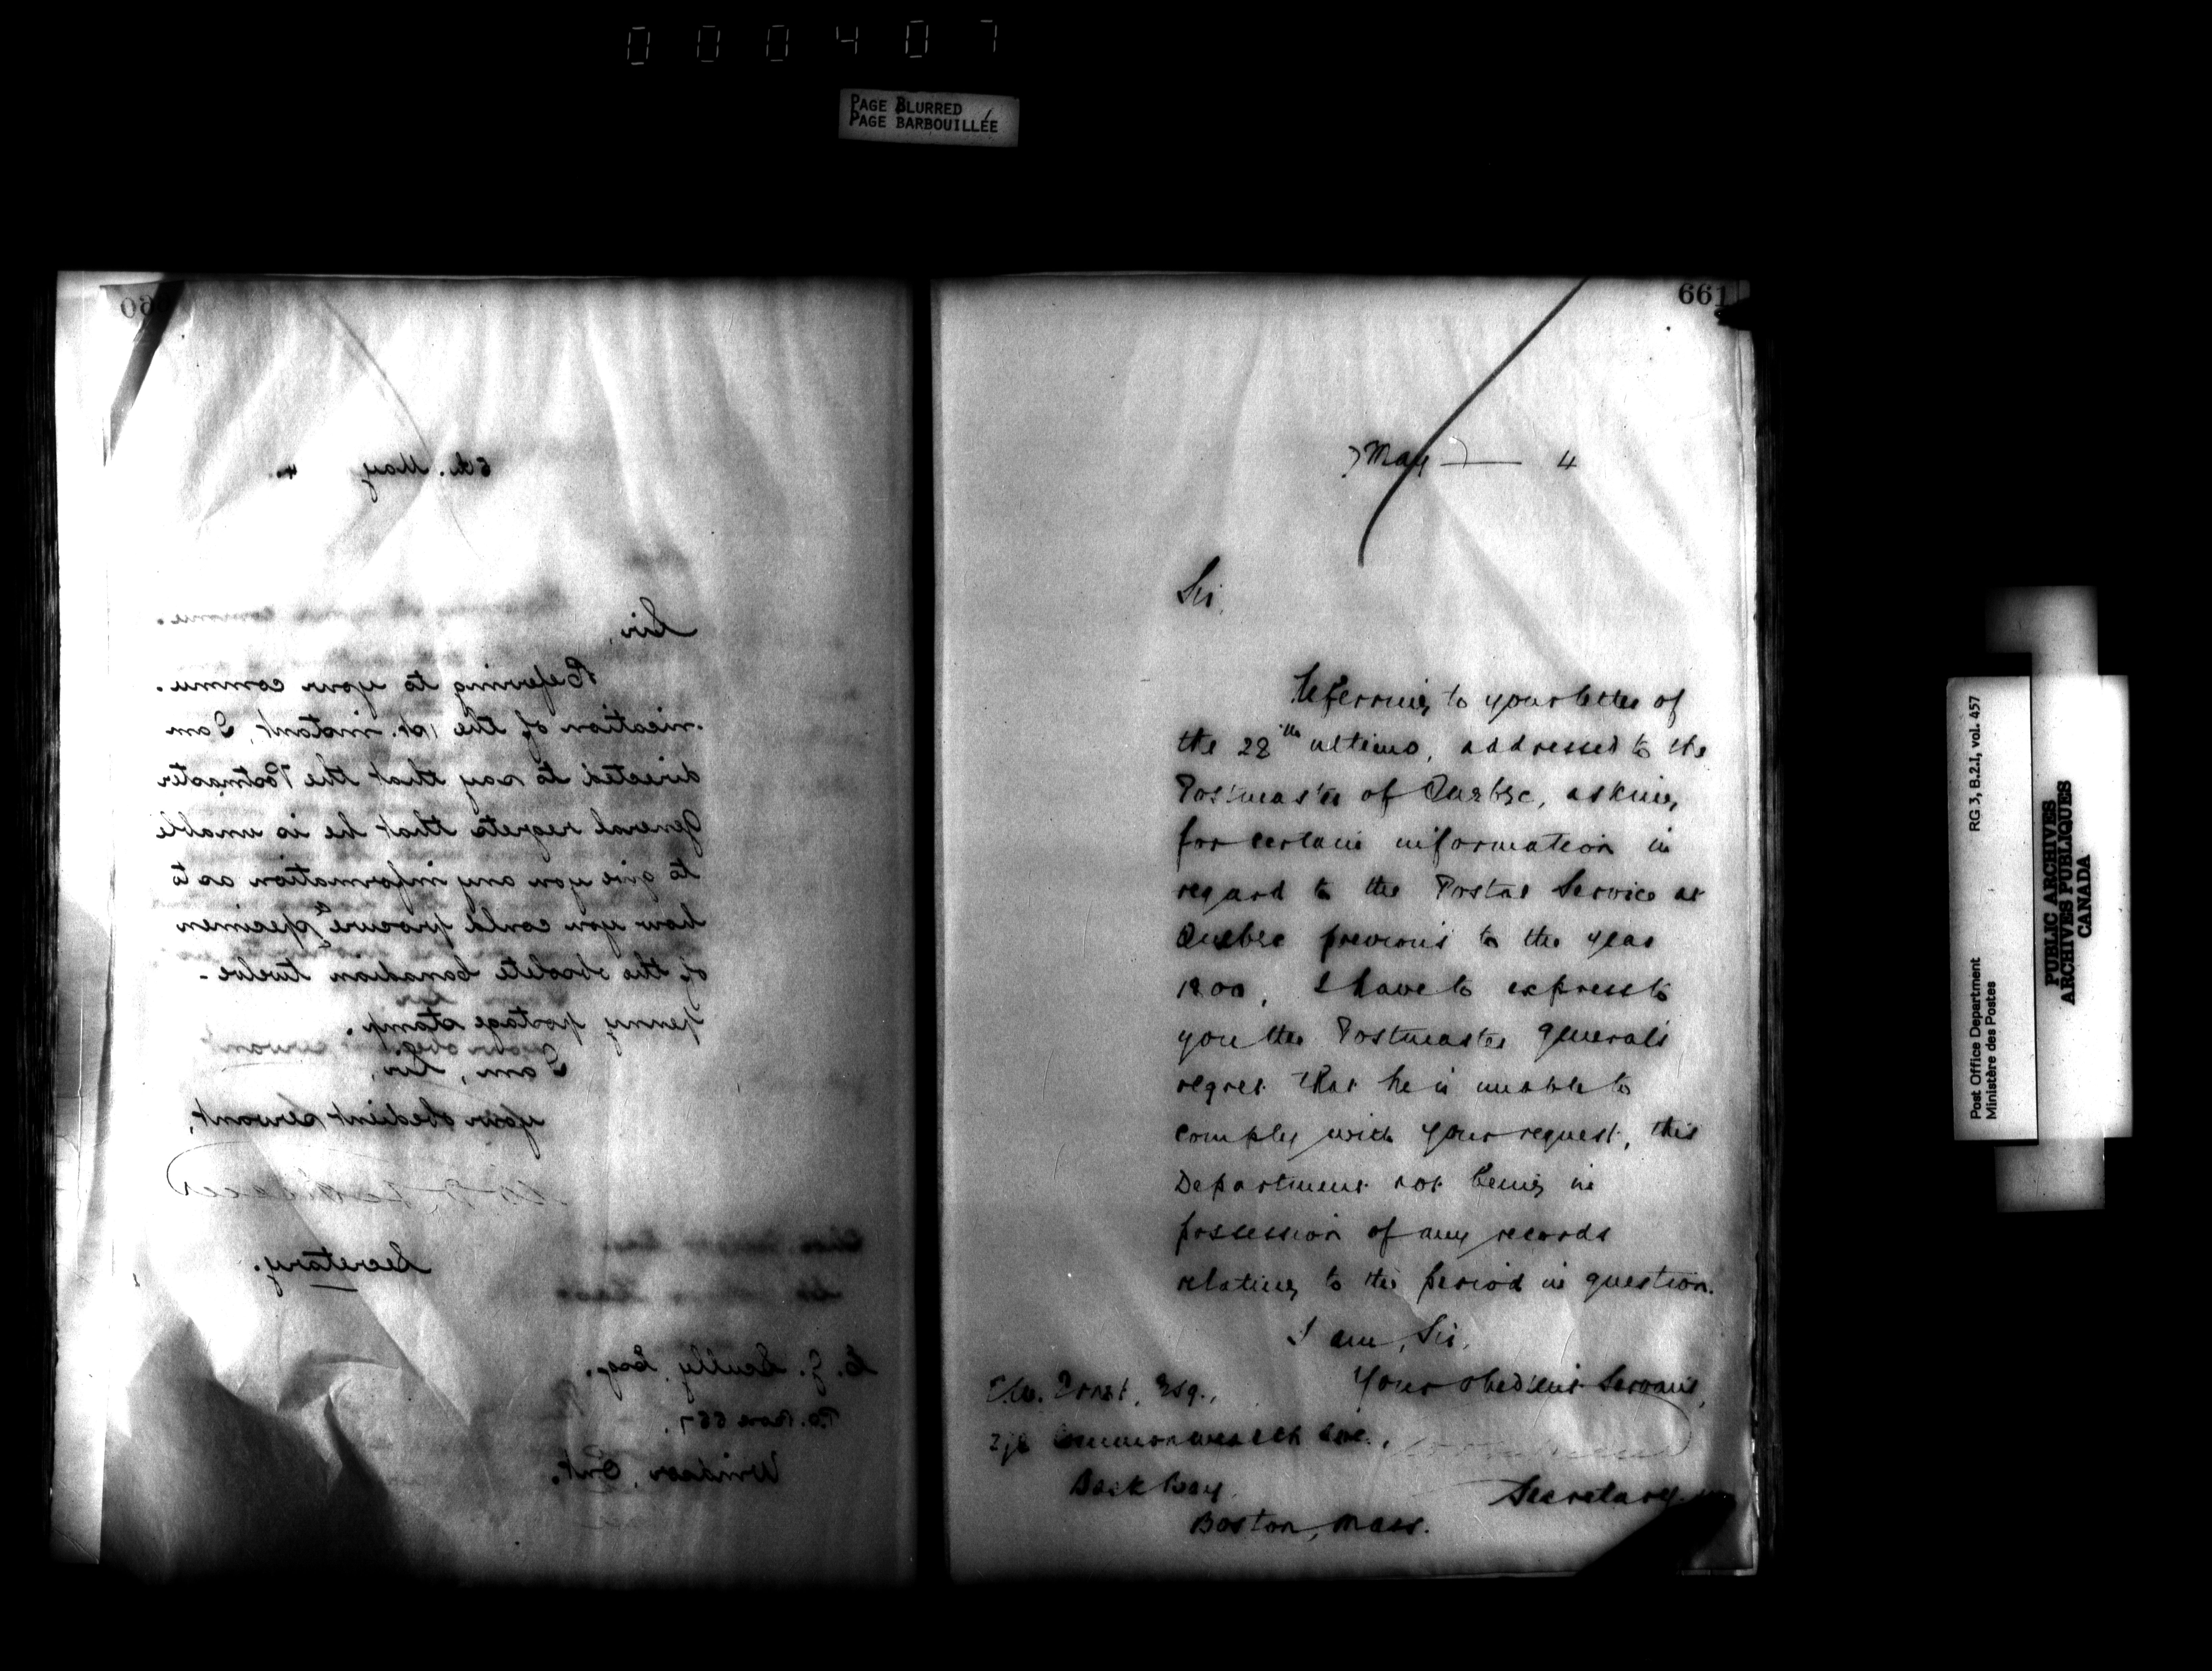 000407
PAGE BLURRED
PAGE BARBOUILLÉE
660
5th. May 4.
Sir,
Referring to your commu-
nication of the 1st. instant, I am
directed to say that the Postmaster
General regrets that he is unable
to give you any information as to
how you could procure a specimen
of the obsolete Canadian twelve-
penny postage stamp.
I am, Sir,
Your obedient servant,
Secretary.
Scully, Esq.
P.O. Box 557
Windsor, Ont.
661
May 4
Sir,
Referring to your letter of
the 28th ultimo, addressed to the
Postmaster of Quebec, asking
for certain information in
regard to the Postal Service at
Quebec previous to the year
1800, I have to express to
you the Postmaster General's
regret that he is unable to
comply with your request, this
Department not being in
possession of any records
relating to the period in question.
I am, Sir,
Your obedient Servant,
Ernst, Esq.,
Commonwealth Ave.,
Back Bay
Boston, Mass.
Secretary
Post Office Department RG 3, B.2.I, vol. 457
Ministère des Postes
PUBLIC ARCHIVES
ARCHIVES PUBLIQUES
CANADA